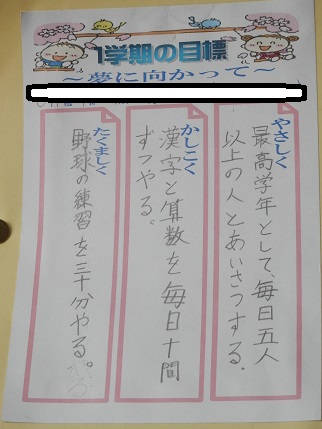 1学期の目標
～夢に向かって～
やさしく
最高学年として、毎日五人
以上の人とあいさつする.
かしこく
漢字と算数を毎日十間
ずつやる。
たくましく
野球の練習を三十分やる。